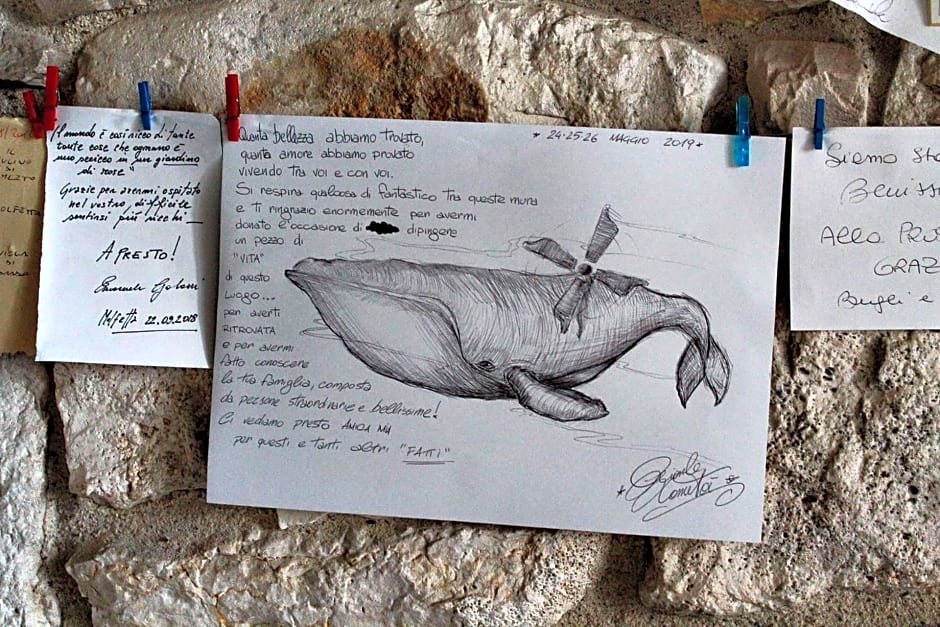 IL
Il mondo è così ricco di tante
tante cose che ognuno è
uno sceicco in un giardino
di rose"
Grazie per avermi ospitato
nel vostro, difficile
sentirsi più ricchi
A PRESTO!
Molfetta 22.09.2018
* 24-25-26 MAGGIO 2019 *
Quanta bellezza abbiamo trovato,
quanto amore abbiamo provato
vivendo tra voi e con voi.
Si respira qualcosa di fantastico tra queste mura
e ti ringrazio enormemente per avermi
donato l'occasione di dipingere
un pezzo di
"VITA"
di questo
LUOGO...
per averti
RITROVATA
e per avermi
fatto conoscere
la tua famiglia, composta
da persone straordinarie e bellissime!
Ci vediamo presto AMICA MIA
per questi e tanti altri "FATTI"
Siamo sta
Beniss
Alla Pros
GRAZ